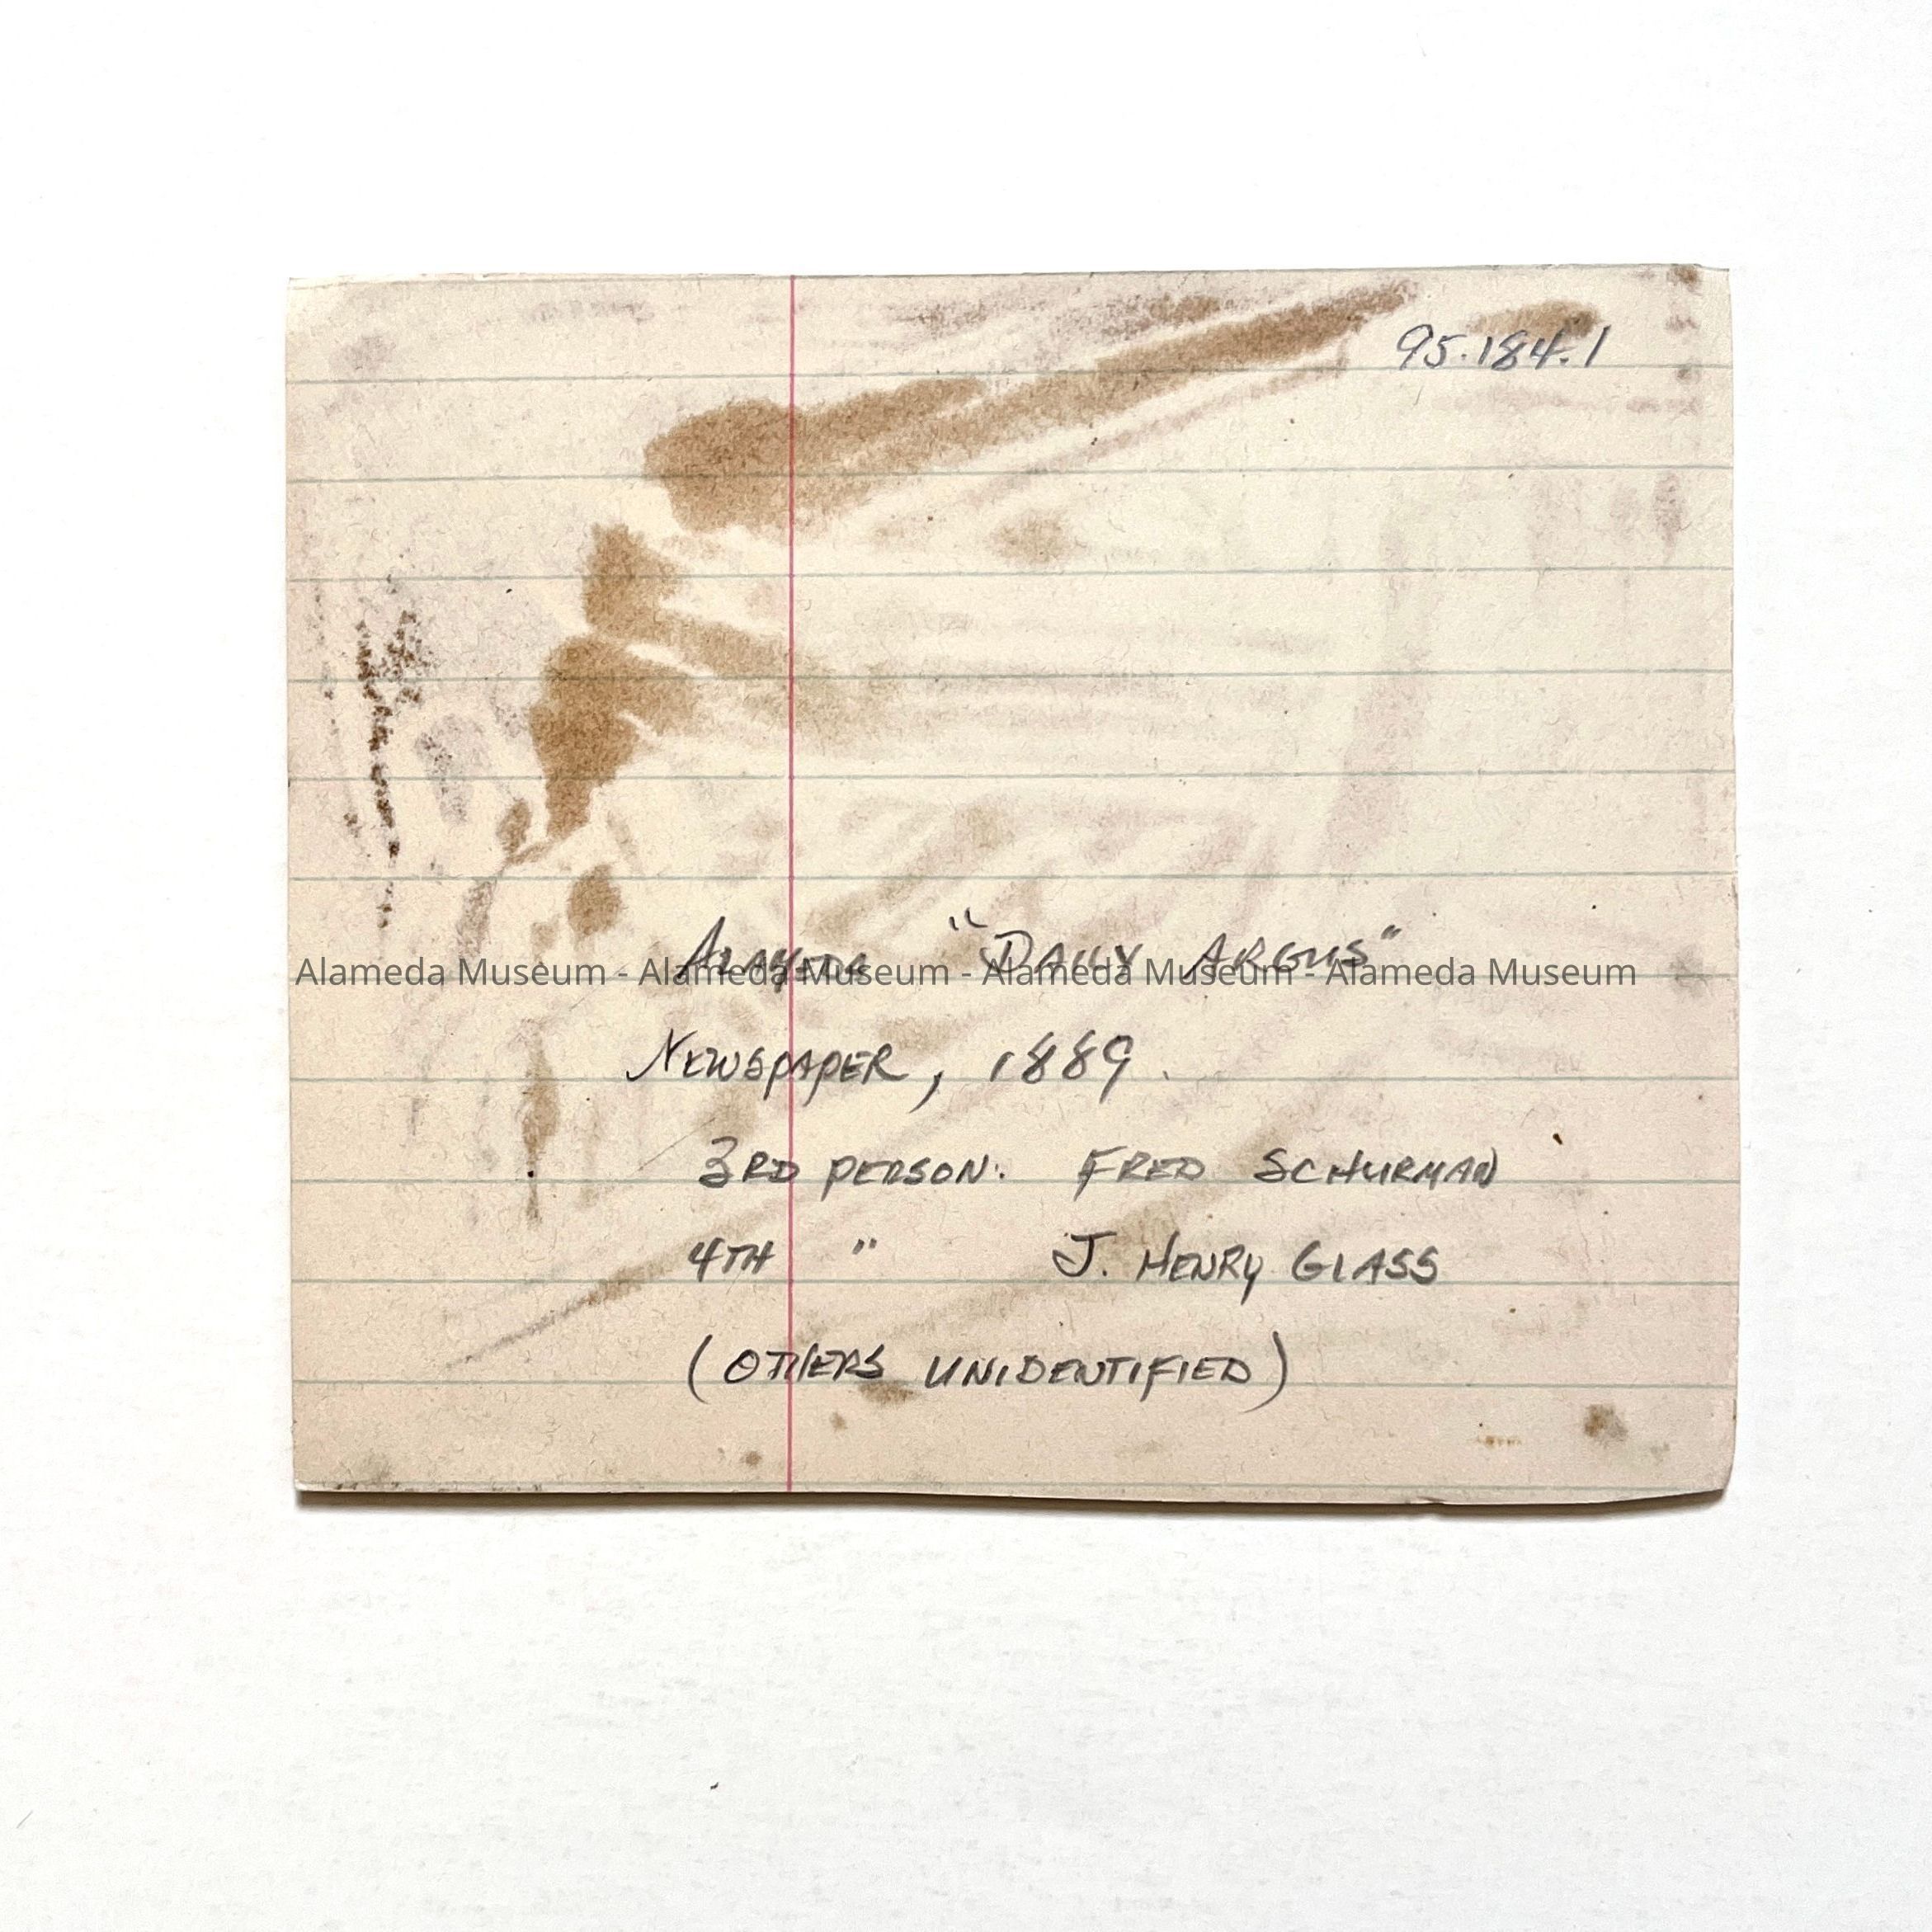 95.184.1
ALAMEDA "DAILY ARGUS"
Alameda Museum - Alameda Museum - Alameda Museum - Alameda Museum
NEWSPAPER, 1889.
3RD PERSON: FRED SCHURMAN
4TH " J. HENRY GLASS
(OTHERS UNIDENTIFIED)